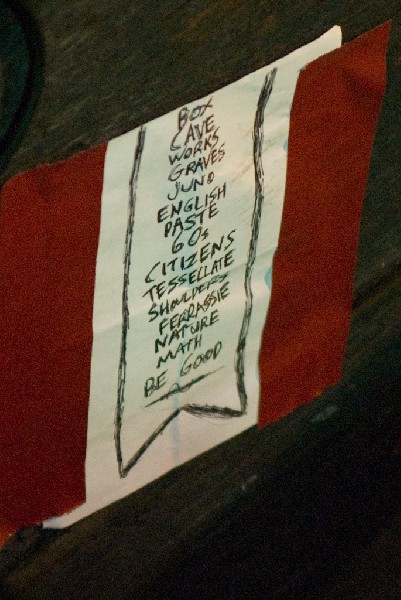 BOX
CAVE
WORKS
GRAVES
JUNO
ENGLISH
PASTE
60s
CITIZENS
TESSELLATE
SHOULDERS
FERRASSIE
NATURE
MATH
BE GOOD